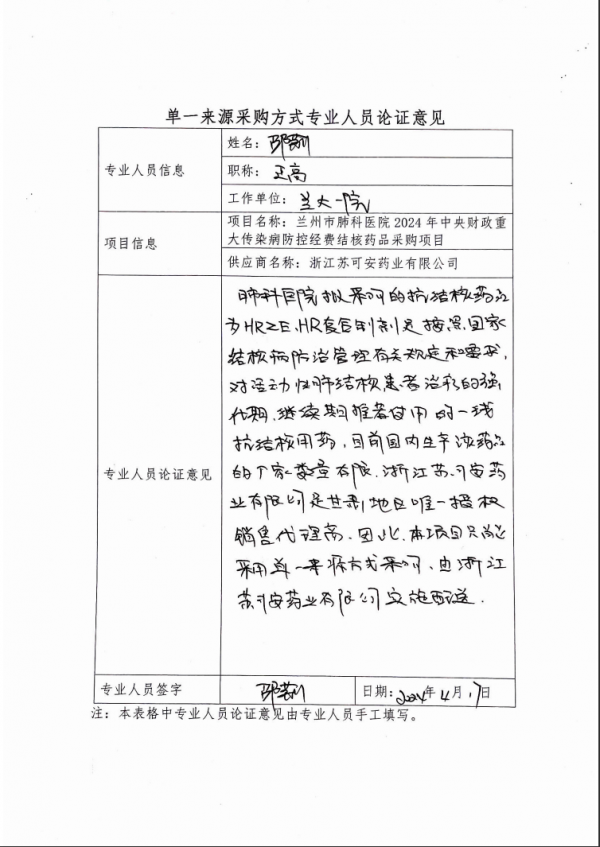 单一来源采购方式专业人员论证意见
专业人员信息
姓名：
职称：正高
工作单位：兰大一院
项目信息
项目名称：兰州市肺科医院2024年中央财政重
大传染病防控经费结核药品采购项目
供应商名称：浙江苏可安药业有限公司
专业人员论证意见
肺科医院拟采购的抗结核药品
为HRZE、HR复合制剂是按照国家
结核病防治管理有关规定和要求，
对活动性肺结核患者治疗的强
化期、继续期推荐使用的一线
抗结核用药，目前国内生产该药品
的厂家数量有限，浙江苏可安药
业有限公司是甘肃地区唯一授权
销售代理商。因此，本项目只能
采用单一来源方式采购，由浙江
苏可安药业有限公司实施配送。
专业人员签字
日期：2024年4月17日
注：本表格中专业人员论证意见由专业人员手工填写。